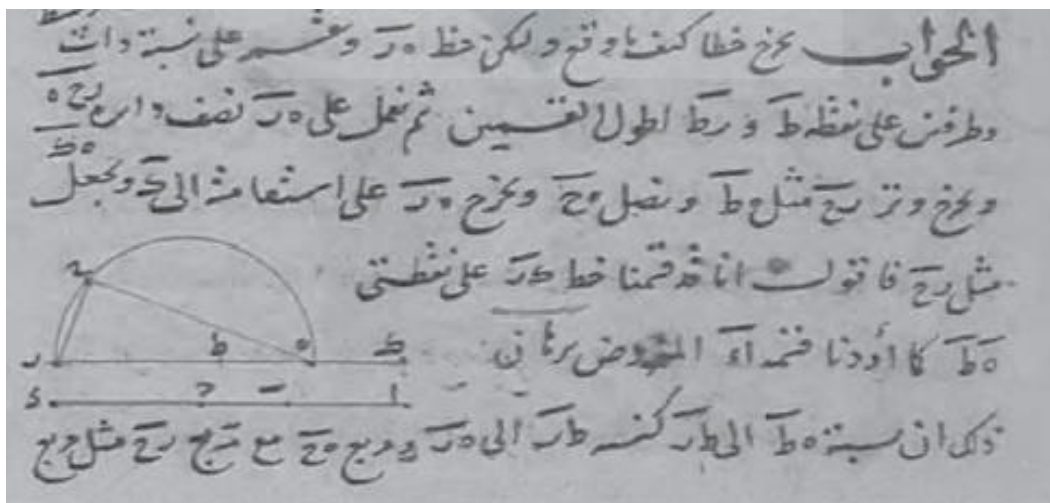 الجواب نخرج خطا كيف ما وقع وليكن خط ه ر ونقسم على نسبة ذات
وطرفين على نقطة ط و ر ط اطول القسمين ثم نعمل على ه ر نصف دايره ر ح ه
ونخرج وتر ر ح مثل ه ط ونصل ه ح ونخرج ه ر على استقامة الى ك ونجعل ه ك
مثل ر ح فاقول انا قد قسمنا خط ك ر على نقطتى
ه ط كما أردنا قسمة ا د المفروض برهان
ذلك ان نسبة ه ط الى ط ر كنسبه ط ر الى ه ر ومربع ه ح مع مربع ر ح مثل مربع
ح
ر ط ه ك
د ح ب ا